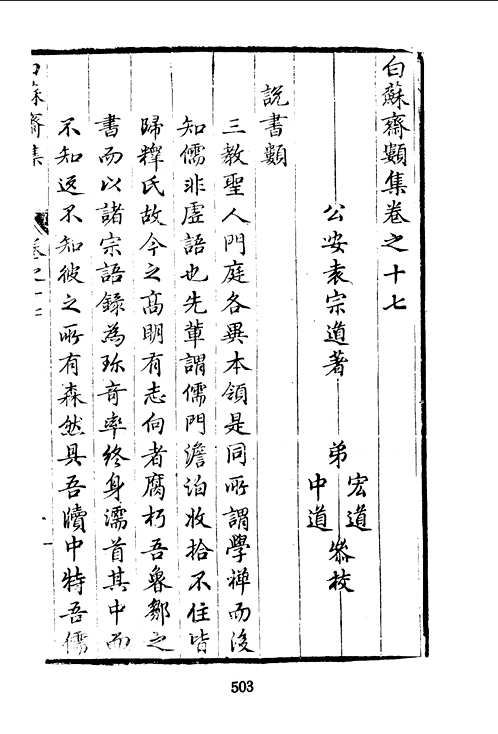 白蘇齋類集卷之十七
公安袁宗道著 弟 宏道 中道 叅校
說書類
三教聖人門庭各異本領是同所謂學禅而後
知儒非虛語也先軰謂儒門澹泊收拾不住皆
歸釋氏故今之髙明有志向者腐朽吾魯鄒之
書而以諸宗語録為珎奇率終身濡首其中而
不知返不知彼之所有森然具吾牘中特吾儒
白蘇齋集 卷之十七
503